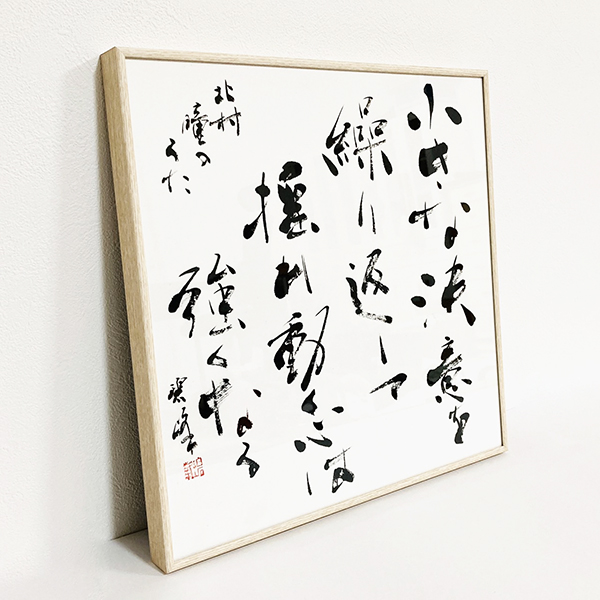 小さな決意を
繰り返して
揺れ動く心は
強く
北村
瞳の
うた